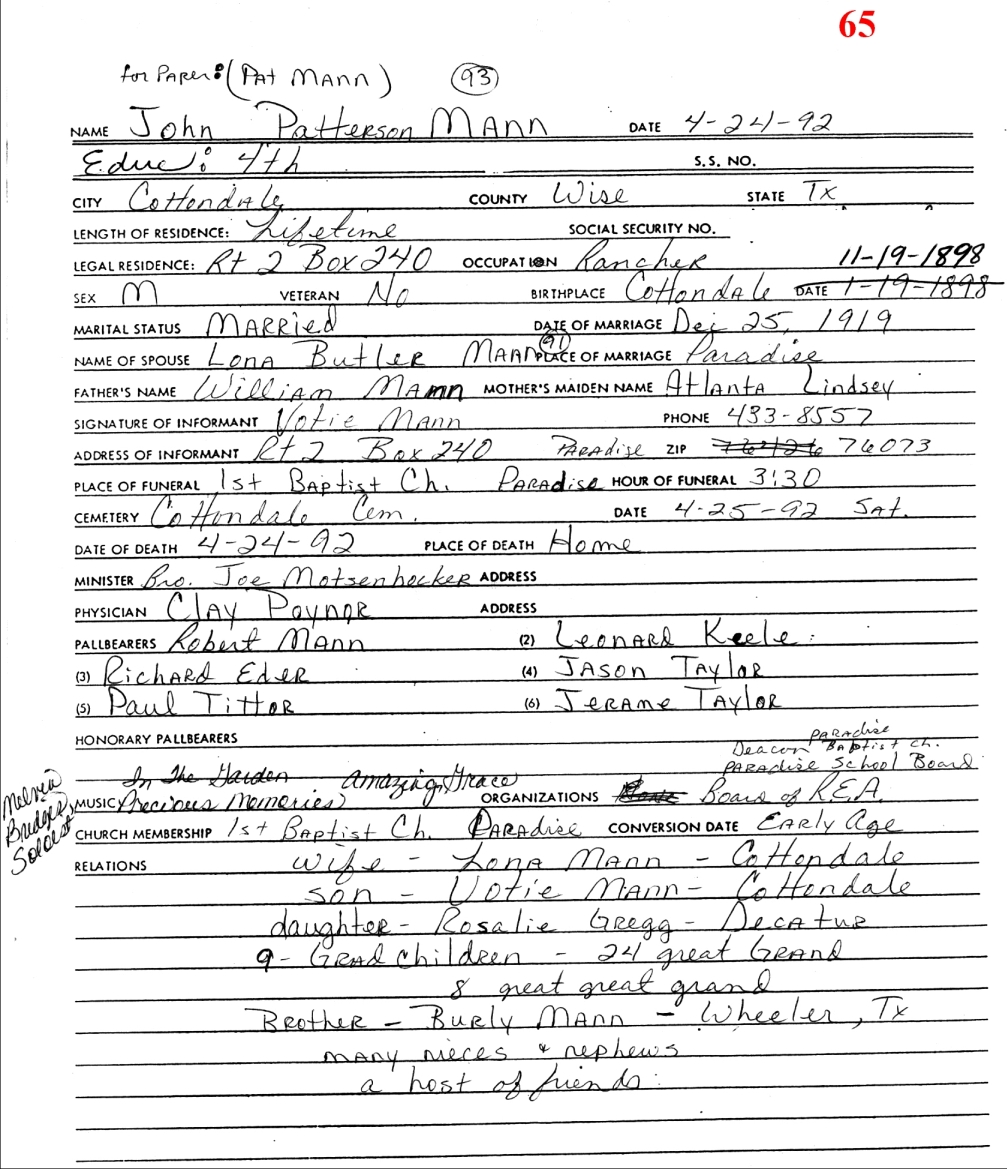 65
for Paper: (Pat Mann) 93
NAME John Patterson Mann DATE 4-24-92
Educ: 4th S.S. NO.
CITY Cottondale COUNTY Wise STATE Tx
LENGTH OF RESIDENCE: Lifetime SOCIAL SECURITY NO.
LEGAL RESIDENCE: Rt 2 Box 240 OCCUPATION Rancher 11-19-1898
SEX M VETERAN No BIRTHPLACE Cottondale DATE 1-19-1898
MARITAL STATUS Married DATE OF MARRIAGE Dec 25, 1919
NAME OF SPOUSE Lona Butler Mann (91) PLACE OF MARRIAGE Paradise
FATHER'S NAME William Mann MOTHER'S MAIDEN NAME Atlanta Lindsey
SIGNATURE OF INFORMANT Votie Mann PHONE 433-8557
ADDRESS OF INFORMANT Rt 2 Box 240 Paradise ZIP 76073
PLACE OF FUNERAL 1st Baptist Ch. Paradise HOUR OF FUNERAL 3:30
CEMETERY Cottondale Cem. DATE 4-25-92 Sat.
DATE OF DEATH 4-24-92 PLACE OF DEATH Home
MINISTER Bro. Joe Motsenbocker ADDRESS
PHYSICIAN Clay Poynor ADDRESS
PALLBEARERS Robert Mann (2) Leonard Keele
(3) Richard Eder (4) Jason Taylor
(5) Paul Tittor (6) Jerame Taylor
HONORARY PALLBEARERS
Paradise
Deacon Baptist Ch.
Paradise School Board
In The Garden Amazing Grace
MUSIC Precious Memories ORGANIZATIONS Board of R.E.A.
Soloist
CHURCH MEMBERSHIP 1st Baptist Ch. Paradise CONVERSION DATE Early Age
RELATIONS wife - Lona Mann - Cottondale
son - Votie Mann - Cottondale
daughter - Rosalie Gregg - Decatur
9 - Grad children - 24 great Grand
8 great great grand
Brother - Burly Mann - Wheeler, Tx
many nieces & nephews
a host of friends